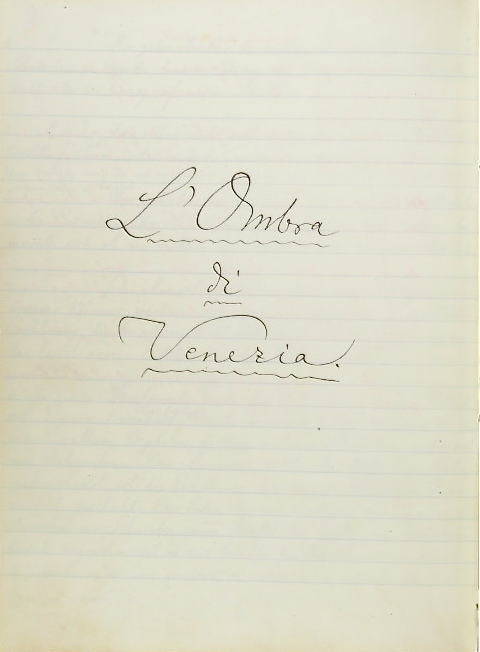 L'Ombra
di
Venezia.